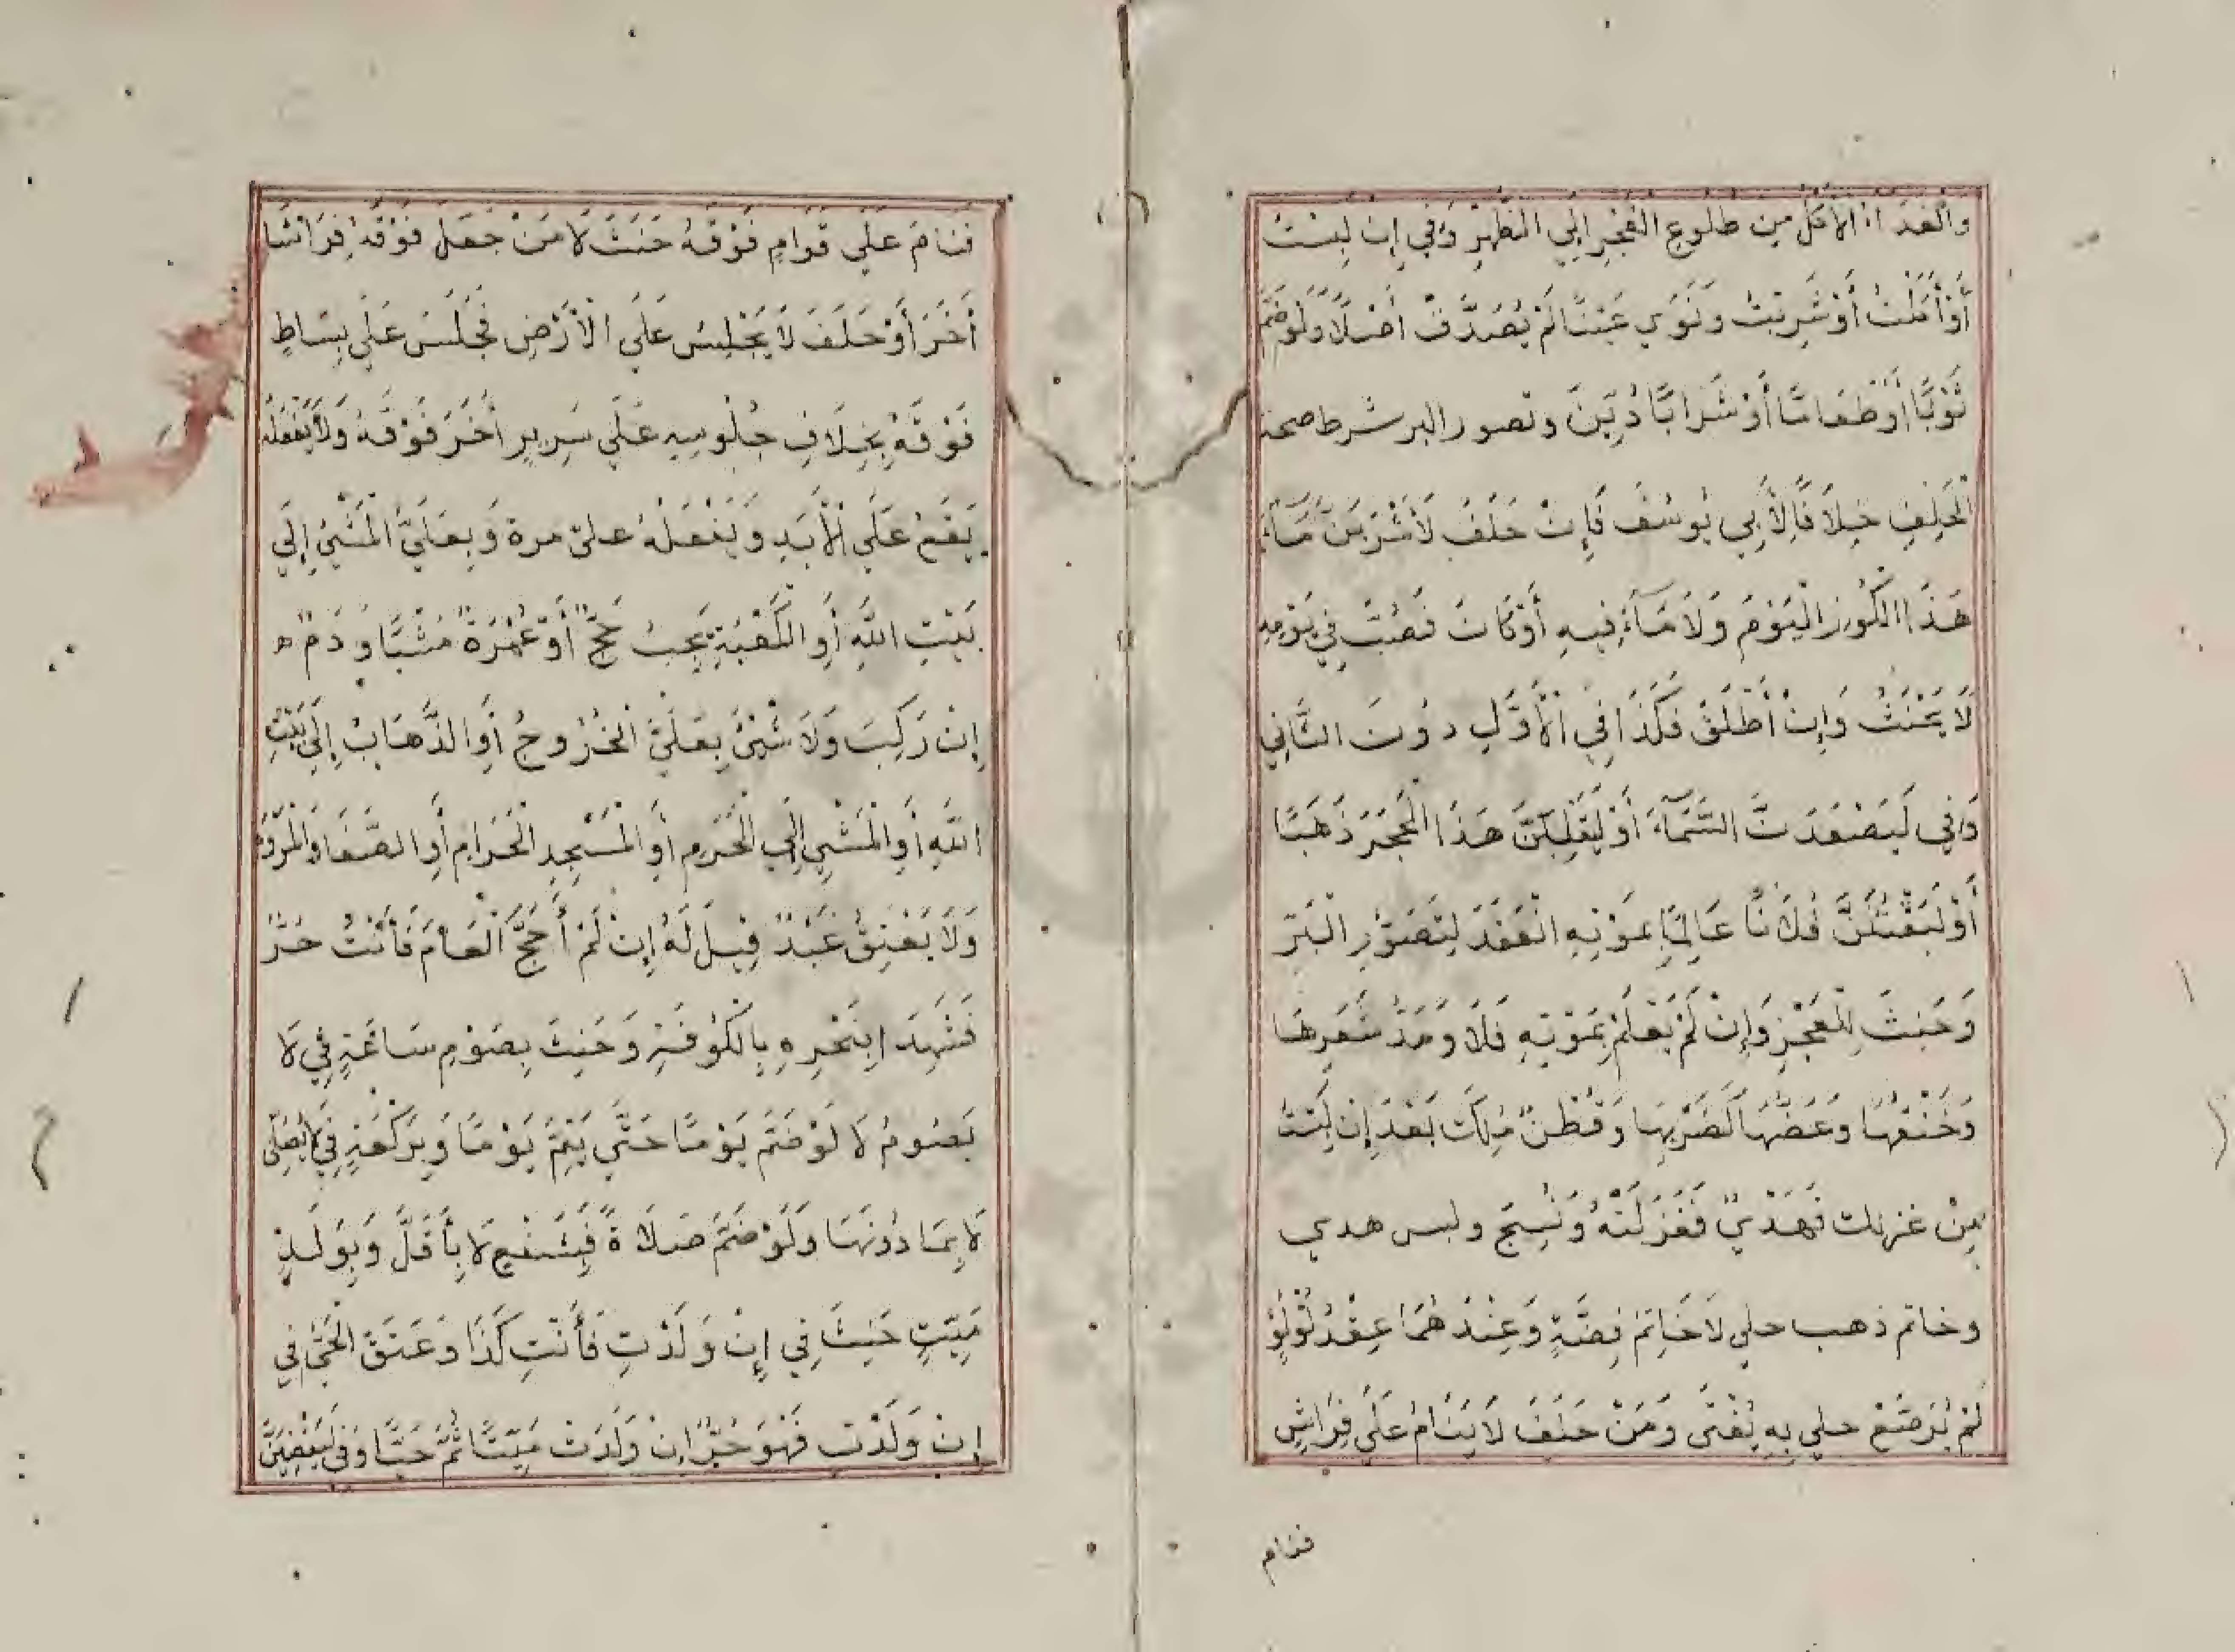 والغداء الاكل من طلوع الفجر الي الظهر وفي إن لبست
أَوْ أَكَلْتُ أَوْ شَرِبْتُ وَنَوَي عَيْنًا لَمْ يُصَدَّقْ أَصْلًا وَلَوْ ضَمَّ
ثَوْبًا أَوْ طَعَامًا أَوْ شَرَابًا دُيِّنَ وتصور البر شرط صحة
الْحَلِفِ خِلَافًا لِأَبِي يُوسُفَ فَإِنْ حَلَفَ لَأَشْرَبَنَّ مَاءَ
هَذَا الْكُوزِ الْيَوْمَ وَلَا مَاءَ فِيهِ أَوْ كَانَ فَصُبَّ فِي يَوْمِهِ
لَا يَحْنَثُ وَإِنْ أَطْلَقَ فَكَذَا فِي الْأَوَّلِ دُونَ الثَّانِي
وَفِي لَيَصْعَدَنَّ السَّمَآءَ أَوْ لَيَقْلِبَنَّ هَذَا الْحَجَرَ ذَهَبًا
أَوْ لَيَقْتُلَنَّ فُلَانًا عَالِمًا بِمَوْتِهِ انْعَقَدَ لِتَصَوُّرِ الْبَرِّ
وَحَنِثَ لِلْعَجْزِ وَإِنْ لَمْ يَعْلَمْ بِمَوْتِهِ فَلَا وَمَدُّ شَعَرِهَا
وَخَنْقُهَا وَعَضُّهَا كَضَرْبِهَا وَقُطْنٌ مُلِكَ بَعْدَ إِنْ لَبِسْتُ
مِنْ غزلك فَهَدْيٌ فَغَزَلَتْهُ وَنُسِجَ ولبس هدي
وخاتم ذهب حلي لَا خَاتَمُ فِضَّةٍ وَعِنْدَهُمَا عِقْدُ لُؤْلُؤٍ
لَمْ يُرَصَّعْ حلي بِهِ يُفْتَى وَمَنْ حَلَفَ لَا يَنَامُ عَلَى فِرَاشٍ
فنام
فَنَامَ عَلَي قِوَامٍ فَوْقَهُ حَنِثَ لَا مَنْ جَعَلَ فَوْقَهُ فِرَاشًا
أَخَرَ أَوْ حَلَفَ لَا يَجْلِسُ عَلَي الْأَرْضِ فَجَلَسَ عَلَي بِسَاطٍ
فَوْقَهُ بِخِلَافِ جُلُوسِهِ عَلَي سَرِيرٍ أَخَرَ فَوْقَهُ وَلَا يَفْعَلُهُ
يَقَعُ عَلَي الْأَبَدِ وَيَفْعَلُهُ على مرة وَبِعَلَيَّ الْمَشْيُ إِلَي
بَيْتِ اللَّهِ أَوِ الْكَعْبَةِ يَجِبُ حَجٌّ أَوْ عُمْرَةٌ مَشْيًا وَدَمٌ ه
إِنْ رَكِبَ وَلَا شَيْئَ بِعَلَيَّ الْخُرُوجُ أَوِ الذَّهَابُ إِلَي بَيْتِ
اللَّهِ أَوِ الْمَشْيِ إِلَي الْحَرَمِ أَوِ الْمَسْجِدِ الْحَرَامِ أَوِ الصَّفَا وَالْمَرْوَةِ
وَلَا يَعْتِقُ عَبْدٌ قِيلَ لَهُ إِنْ لَمْ أَحُجَّ الْعَامَ فَأَنْتَ حُرٌّ
فَشَهِدَا بِنَحْرِهِ بِالْكُوفَةِ وَحَنِثَ بِصَوْمِ سَاعَةٍ فِي لَا
يَصُومُ لَا لَوْ ضَمَّ يَوْمًا حَتَّي يَتِمَّ يَوْمًا وَبِرَكْعَةٍ فِي لَا يُصَلِّي
لَا بِمَا دُونَهَا وَلَوْ ضَمَّ صَلَاةً فَبِشَفْعٍ لَا بِأَقَلَّ وَبِوَلَدٍ
مَيِّتٍ حَنِثَ فِي إِنْ وَلَدْتِ فَأَنْتِ كَذَا وَعَتَقَ الْحَيُّ فِي
إِنْ وَلَدْتِ فَهُوَ حُرٌّ إِنْ وَلَدَتْ مَيِّتًا ثُمَّ حَيًّا وَفِي لَيَقْضِيَنَّ